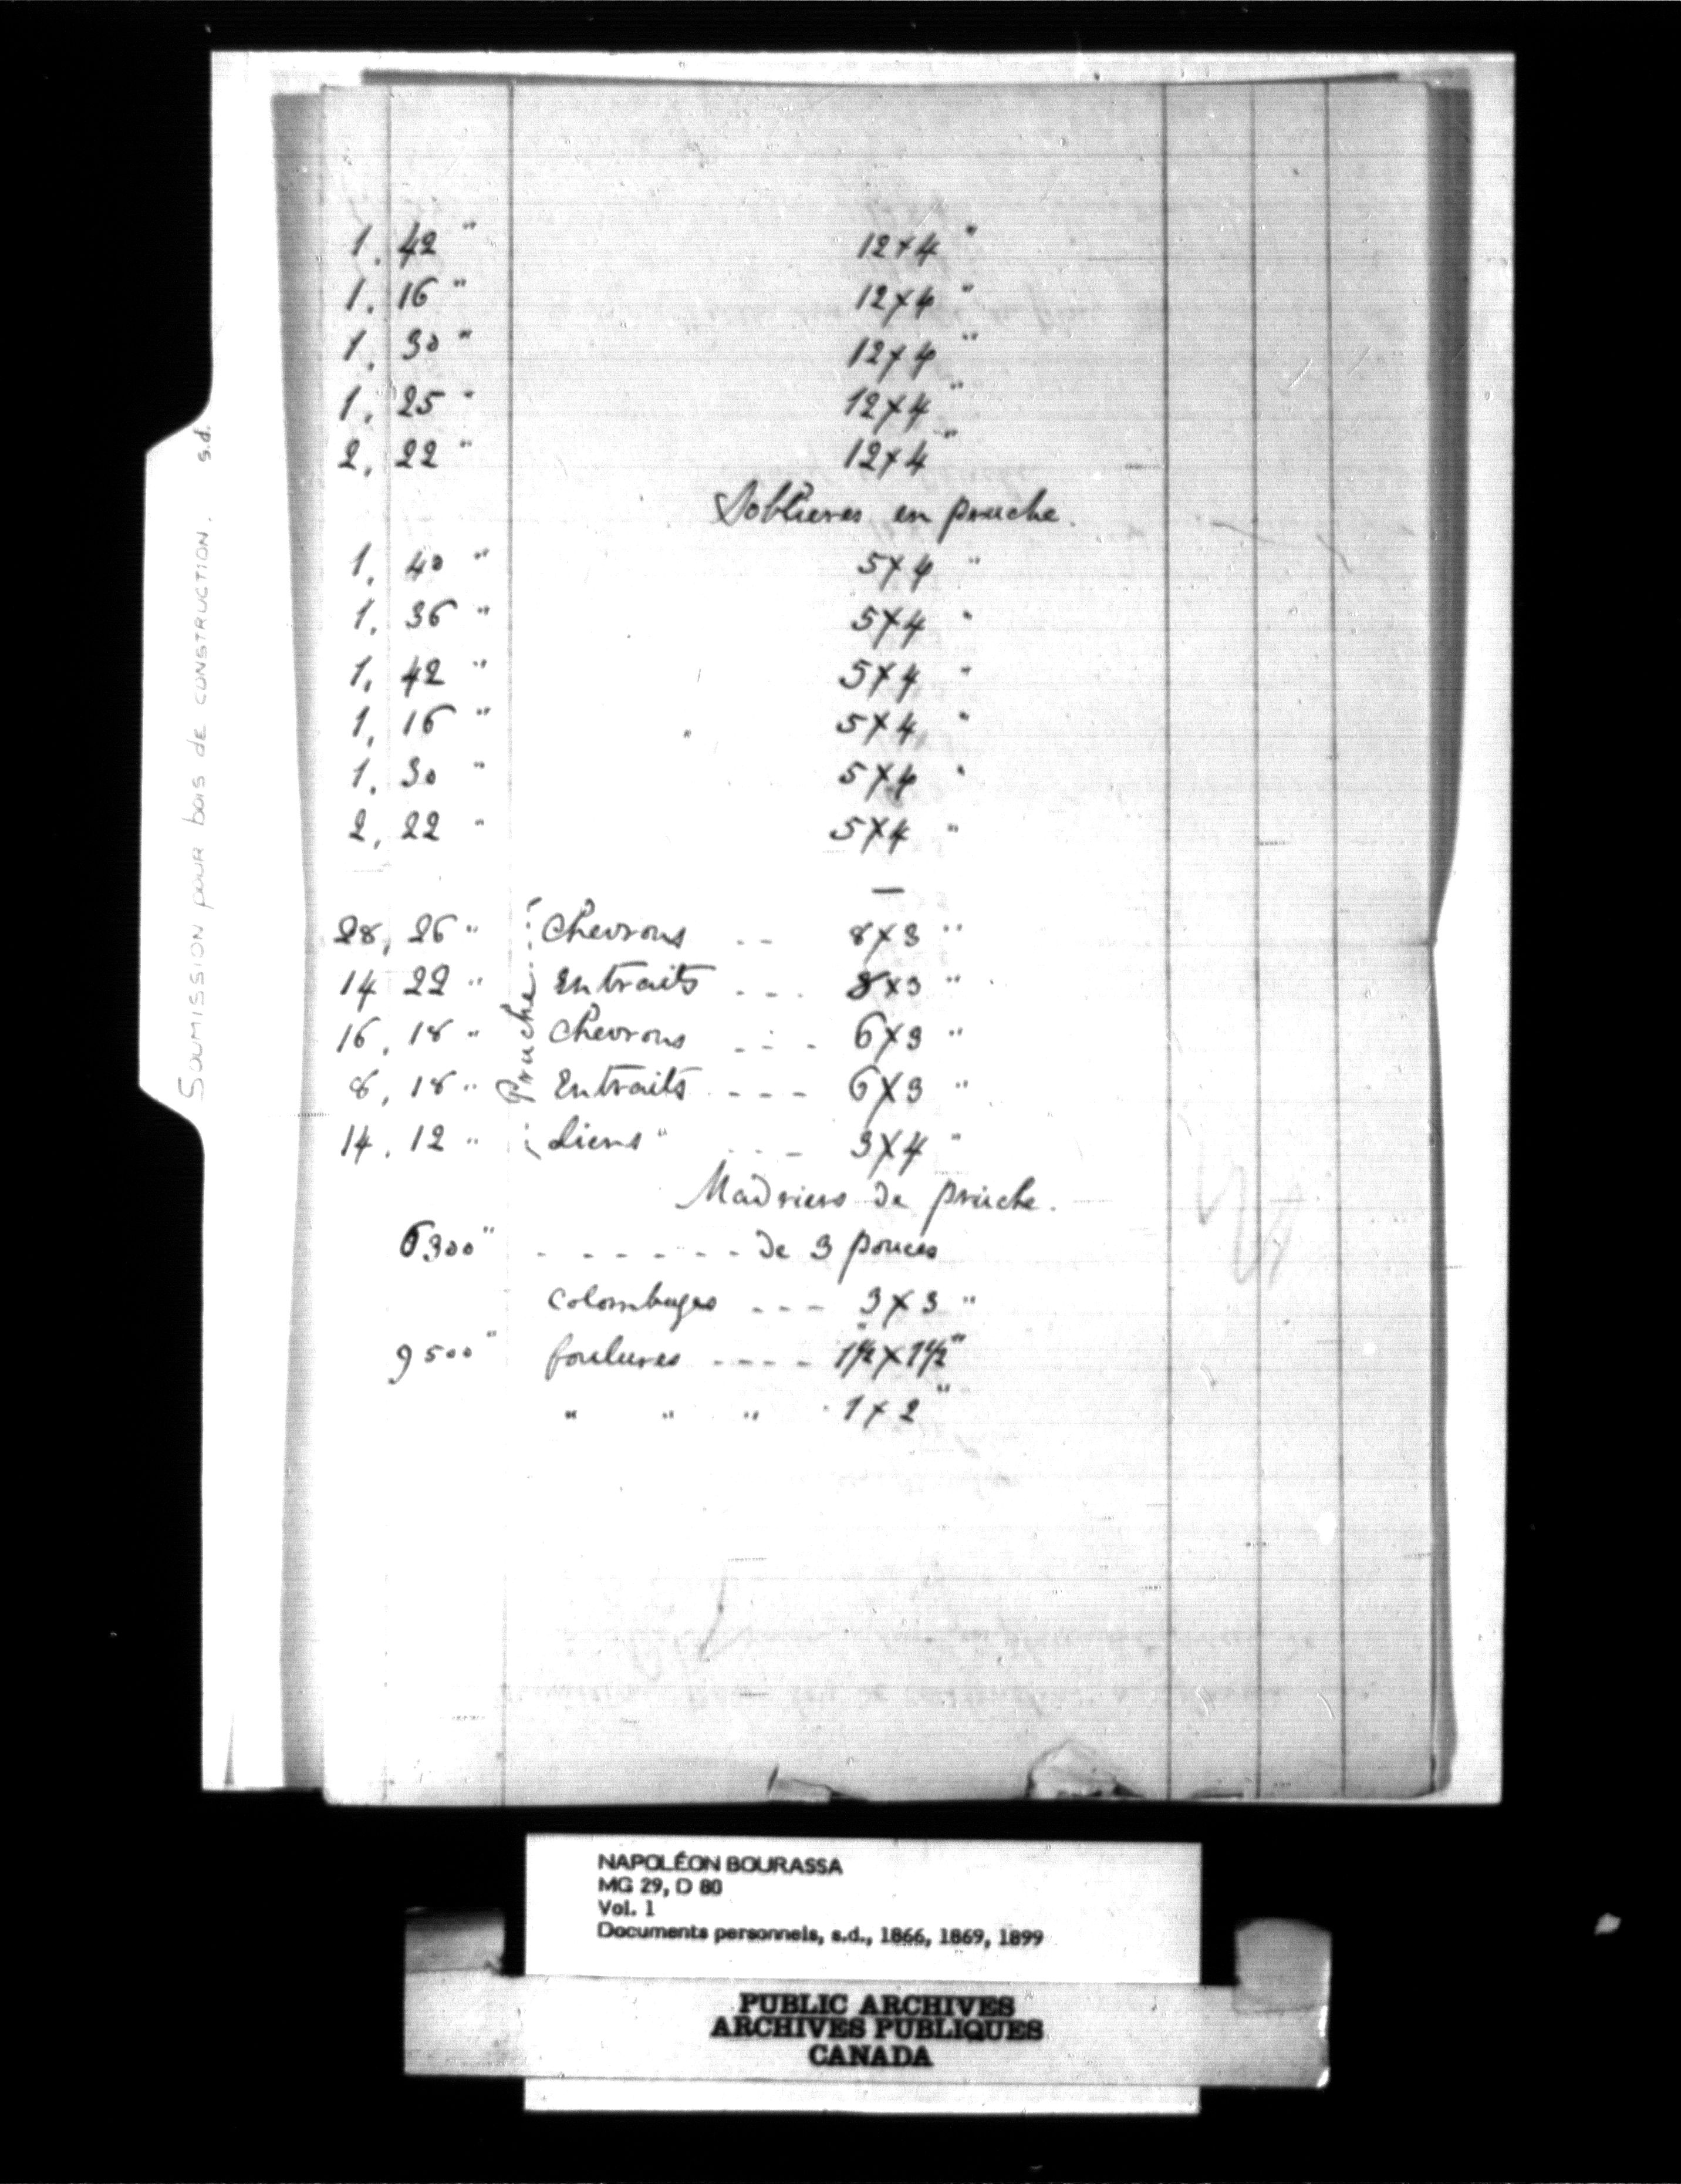 SOUMISSION pour bois de CONSTRUCTION. s.d.
1. 42 " 12 x 4 "
1. 16 " 12 x 4 "
1. 30 " 12 x 4 "
1. 25 " 12 x 4 "
2. 22 " 12 x 4 "
Sablieres en pruche.
1. 40 " 5 x 4 "
1. 36 " 5 x 4 "
1. 42 " 5 x 4 "
1. 16 " " 5 x 4 "
1. 30 " 5 x 4 "
2, 22 " 5 x 4 "
—
Pruche
28, 26 " Chevrons -- 8 x 3 "
14 22 " Entraits --- 8 x 3 "
16, 18 " Chevrons --- 6 x 3 "
8, 18 " Entraits --- 6 x 3 "
14. 12 " Liens " --- 3 x 4 "
Madriers de pruche.
6300 " ------- de 3 pouces
Colombages --- 3 x 3 "
9500 " foulures ---- 1½" x 1½"
" " " 1 x 2 "
NAPOLÉON BOURASSA
MG 29, D 80
Vol. 1
Documents personnels, s.d., 1866, 1869, 1899
PUBLIC ARCHIVES
ARCHIVES PUBLIQUES
CANADA